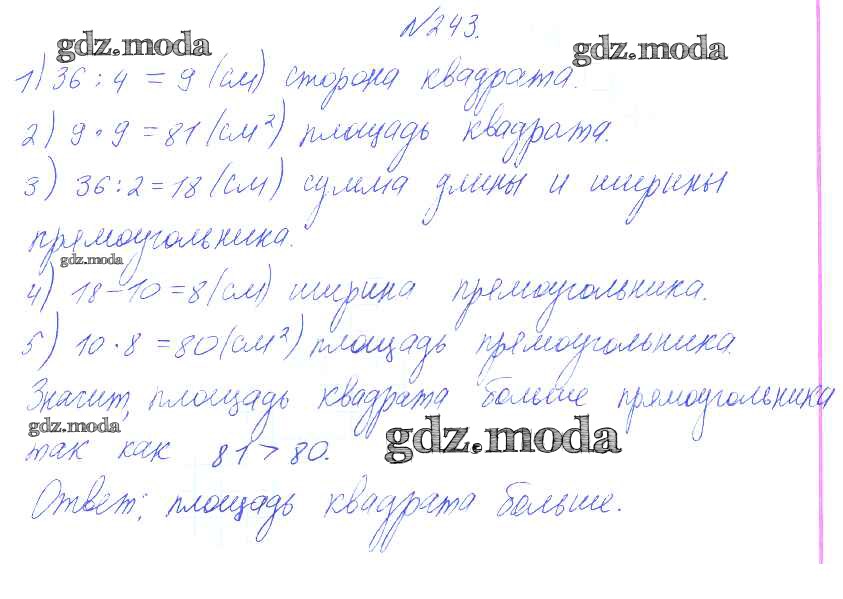 №243.
gdz.moda gdz.moda
1) 36 : 4 = 9 (см) сторона квадрата.
2) 9 · 9 = 81 (см²) площадь квадрата.
3) 36 : 2 = 18 (см) сумма длины и ширины
прямоугольника.
gdz.moda
4) 18 - 10 = 8 (см) ширина прямоугольника.
5) 10 · 8 = 80 (см²) площадь прямоугольника.
Значит, площадь квадрата больше прямоугольника
gdz.moda gdz.moda
так как 81 > 80.
Ответ: площадь квадрата больше.